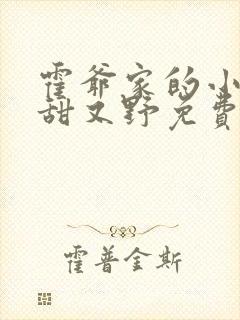 霍爷家的小
甜又野免费
霍普金斯